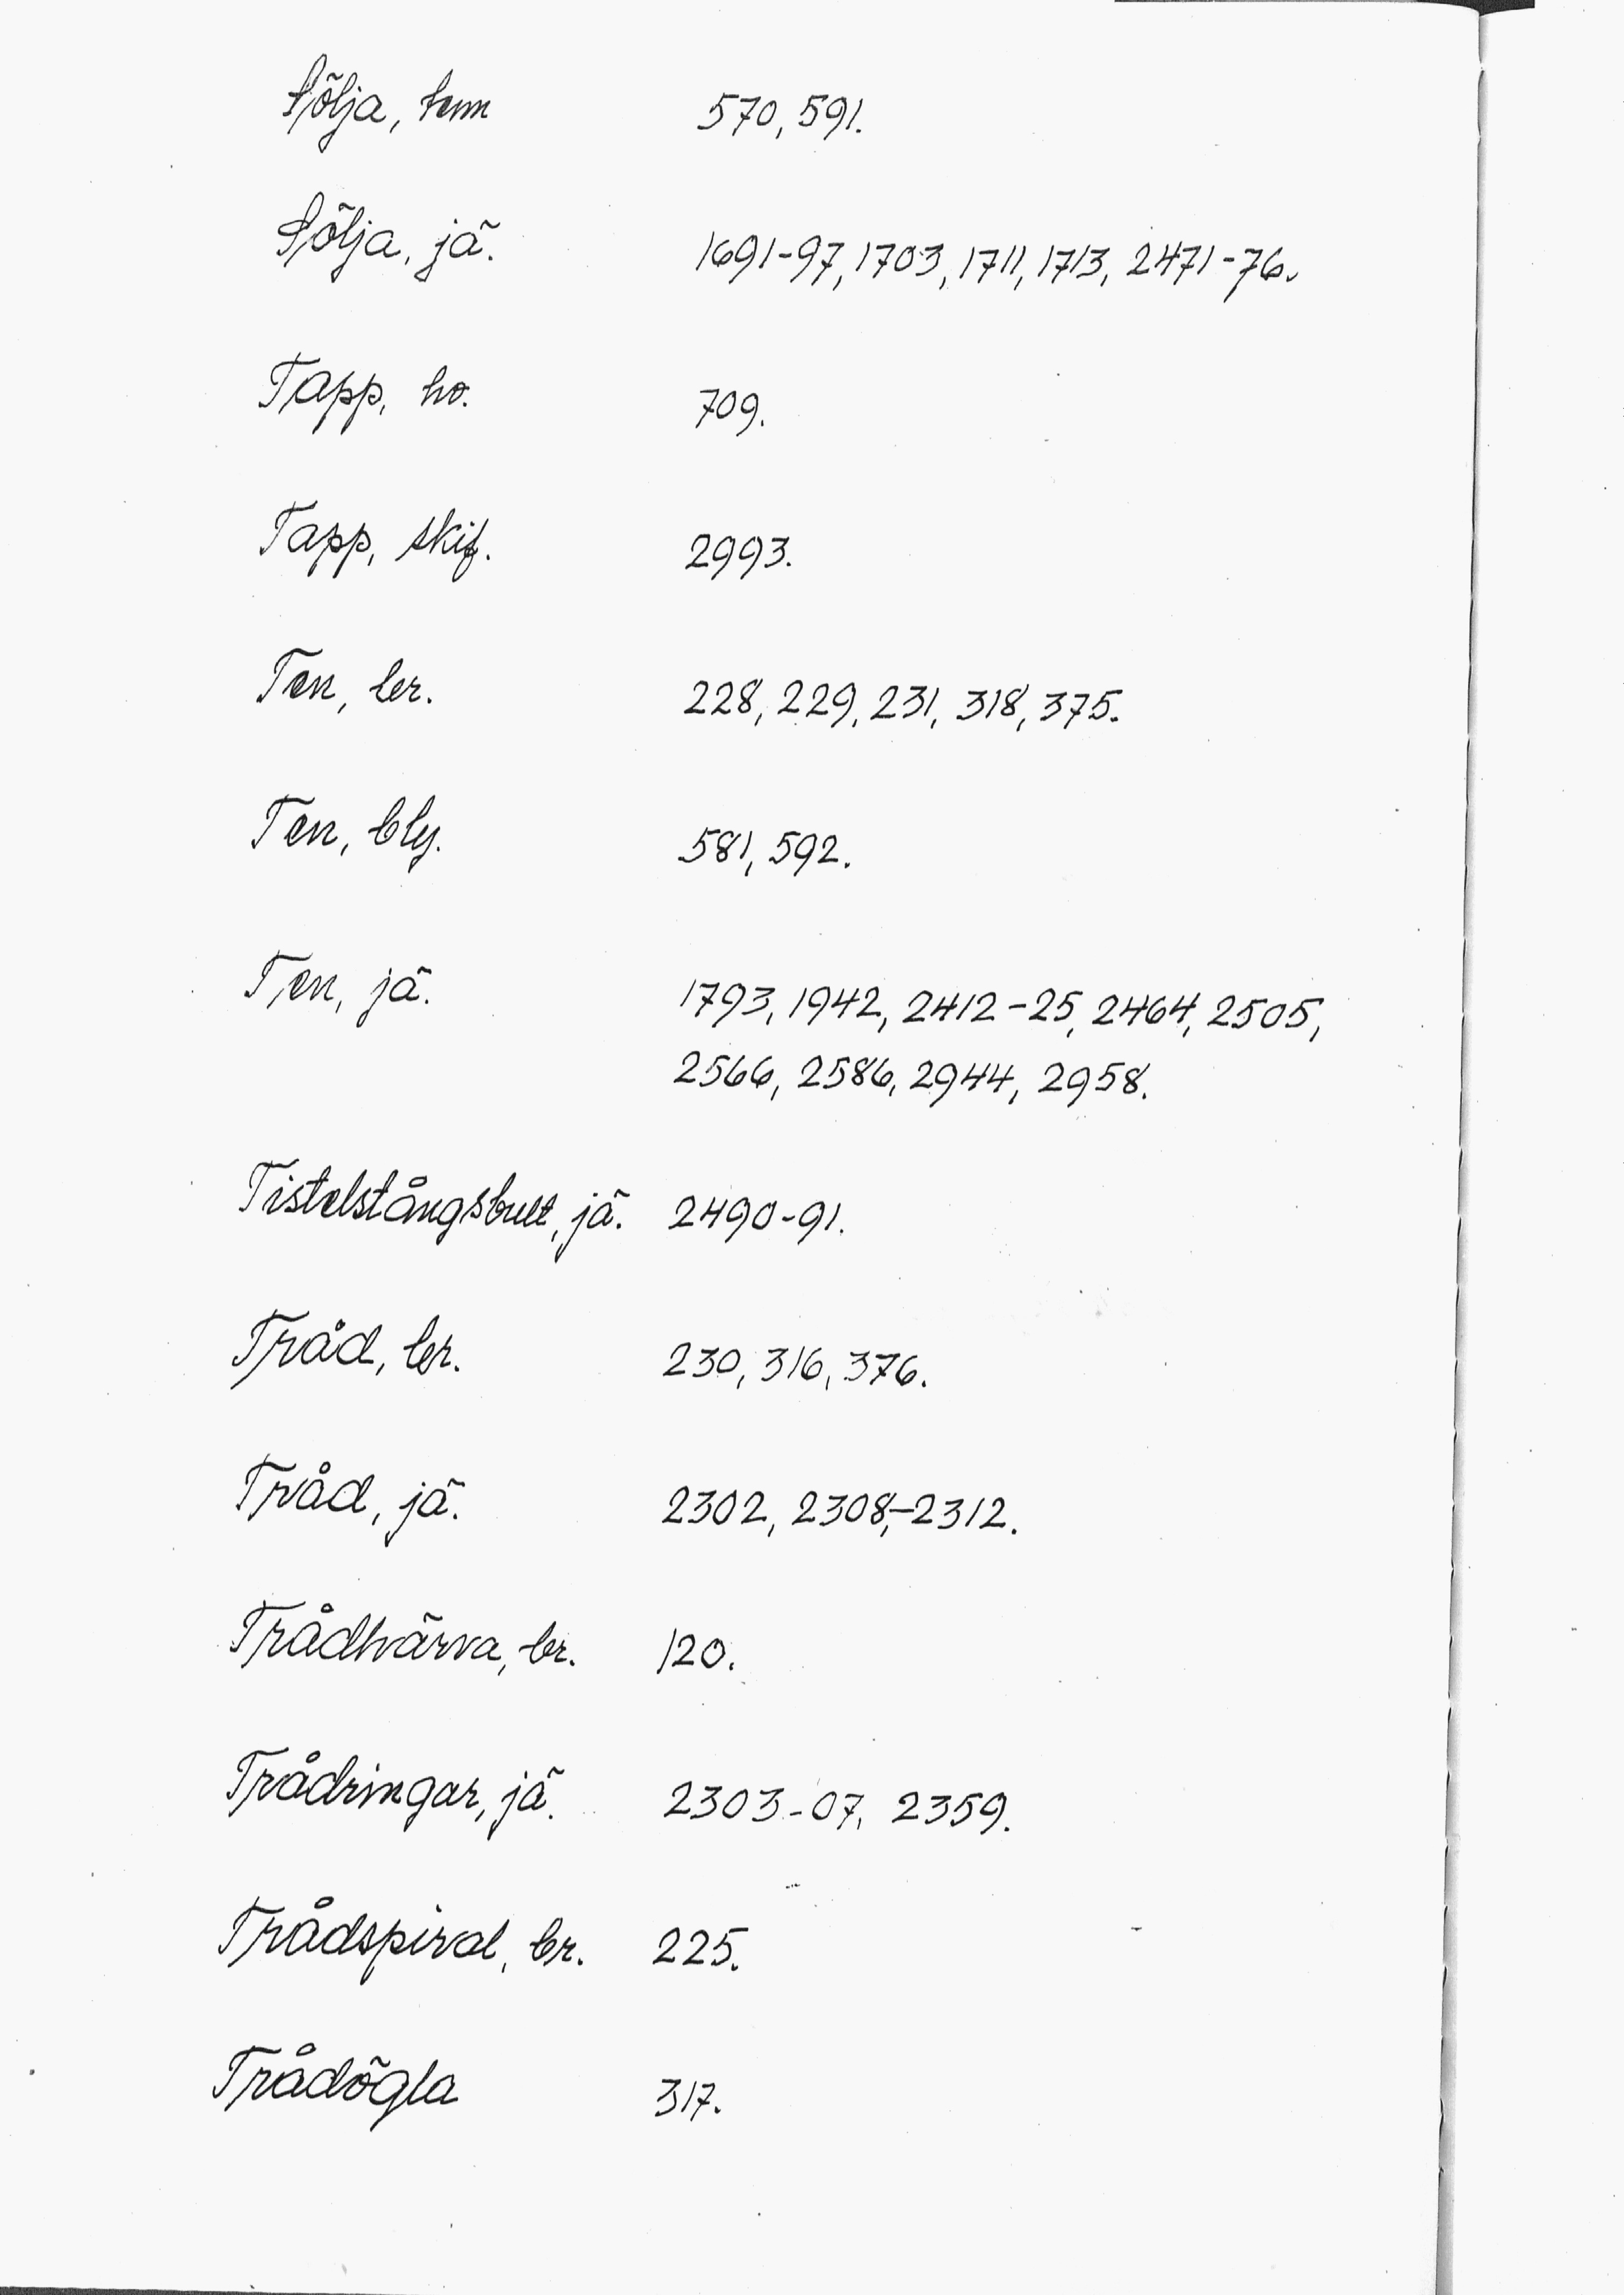 Sölja, tenn 570, 591.
Sölja, jä. 1691-97, 1703, 1711, 1713, 2471-76.
Tapp, ho. 709.
Tapp, skif. 2993.
Ten, br. 228, 229, 231, 318, 375.
Ten, bly. 581, 592.
Ten, jä. 1793, 1942, 2412-25, 2464, 2505,
2566, 2586, 2944, 2958.
Tistelstångsbult, jä. 2490-91.
Tråd, br. 230, 316, 376.
Tråd, jä. 2302, 2308,-2312.
Trådhärva, br. 120.
Trådringar, jä. 2303-07, 2359.
Trådspiral, br. 225.
Trådögla 317.